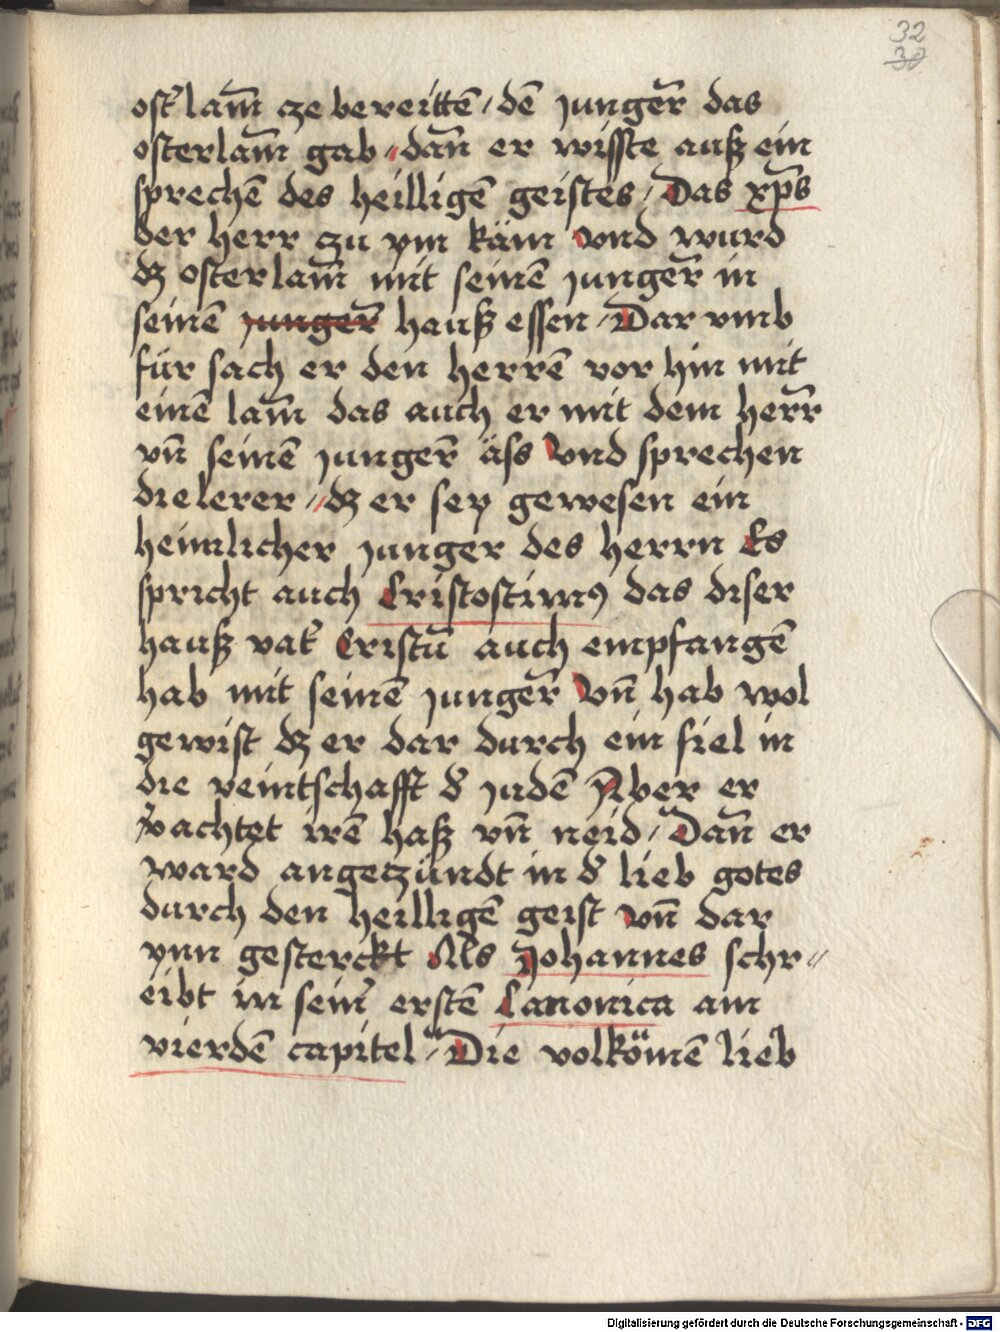 32
30
ost̄ lam̄ cze bereittē / dē jungeȓ das
osterlam̄ gab // dan̄ er wisste auß ein
sprechē des heilligē geistes / Das xp̄s
der herr zu ym käm vnd wurd
dz osterlam̄ mit seinē jungeȓ in
seinē jungeȓ hauß essen / Dar vmb
für sach er den herrē vor hin mit
einē lam̄ das auch er mit dem heȓr
vn̄ seinē jungeȓ äss vnd sprechen
die lerer // dz er sey gewesen ein
heimlicher junger des herrn Es
spricht auch Cristostimꝰ das diser
hauß vat̄ Cristū auch empfangē
hab mit seinē jungeȓ Vn̄ hab wol
gewist dz er dar durch ein fiel in
die veintschafft d̄ judē Aber er
v̄achtet irē haß vn̄ neid / Dan̄ er
ward angeczündt in d̄ lieb gotes
durch den heilligē geist vn̄ dar
ynn gesterckt Als Johannes schr〃
eibt in sein̄ erstē Canonica am
vierdē capitel // Die volkömē lieb
Digitalisierung gefördert durch die Deutsche Forschungsgemeinschaft - DFG